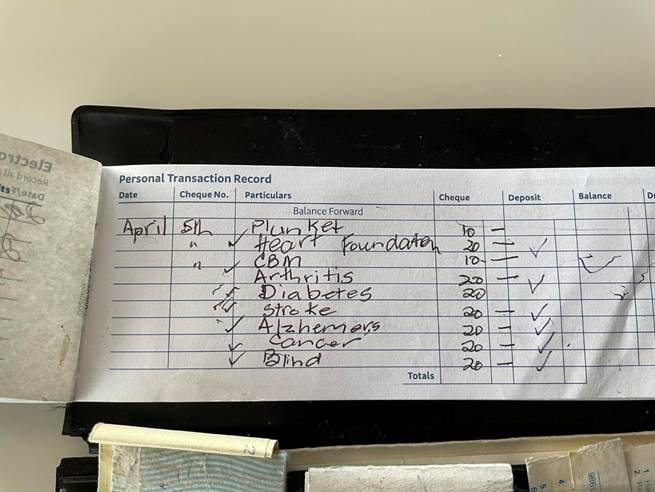 Personal Transaction Record
Date Cheque No. Particulars Cheque Deposit Balance
Balance Forward
April 5th Plunket 10 —
" ✓ Heart Foundaton 20 — ✓
CBM 10 —
" ✓ Arthritis 20 — ✓
Diabetes 20
Stroke 20 — ✓
✓ Alzhemers 20 — ✓
✓ Cancer 20 — ✓
✓ Blind 20 — ✓
Totals